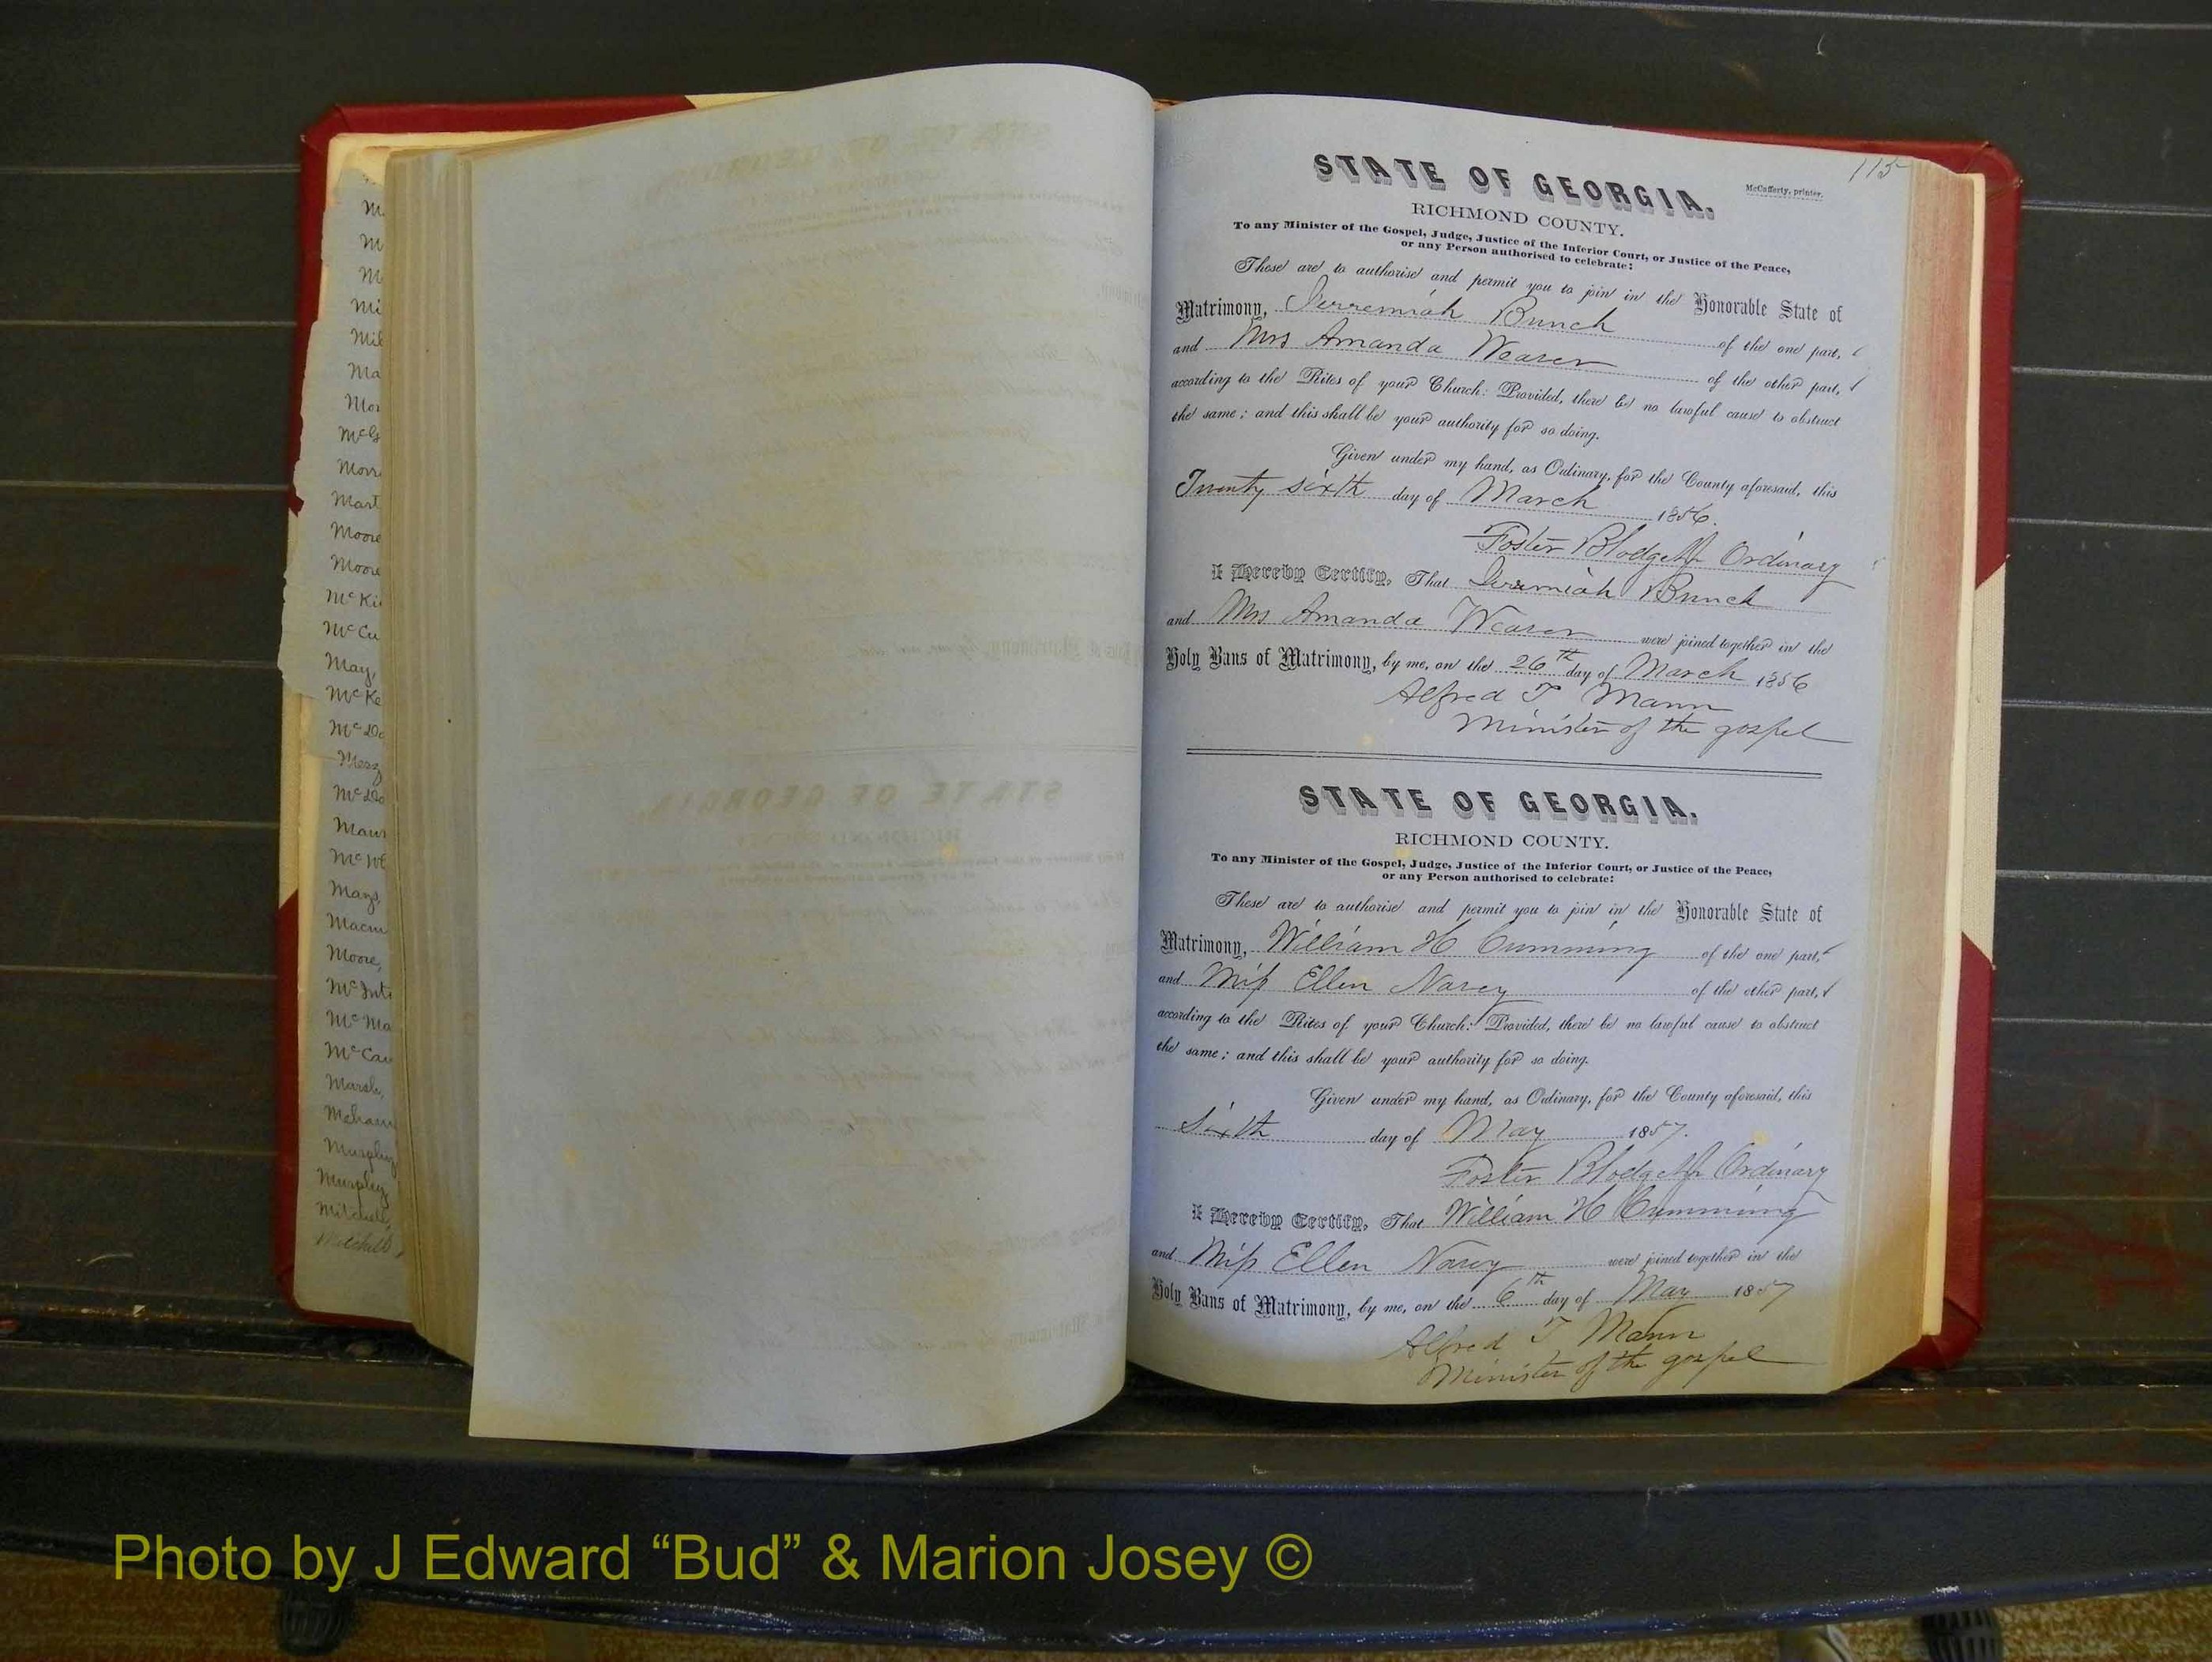 M
M
M
Mi
Mil
Ma
Mor
McG
Morr
Mart
Moore
Moore
McKi
McCu
May,
McKe
McDo
McDo
Maur
McWe
Mays,
Macm
Moore,
McInt
McMa
McCau
Marsh,
Meham
Murphy
Murphy
Mitchell,
Mitchell,
115
STATE OF GEORGIA.
McCafferty, printer.
RICHMOND COUNTY.
To any Minister of the Gospel, Judge, Justice of the Inferior Court, or Justice of the Peace,
or any Person authorised to celebrate:
These are to authorise and permit you to join in the Honorable State of
Matrimony, Jerremiah Bunch of the one part,
and Mrs Amanda Weaver of the other part,
according to the Rites of your Church: Provided, there be no lawful cause to obstruct
the same; and this shall be your authority for so doing.
Given under my hand, as Ordinary, for the County aforesaid, this
Twenty sixth day of March 1856.
Foster Blodget Jr Ordinary
I Hereby Certify, That Jeremiah Bunch
and Mrs Amanda Weaver were joined together in the
Holy Bans of Matrimony, by me, on the 26th day of March 1856
Alfred T Mann
Minister of the gospel
STATE OF GEORGIA.
RICHMOND COUNTY.
To any Minister of the Gospel, Judge, Justice of the Inferior Court, or Justice of the Peace,
or any Person authorised to celebrate:
These are to authorise and permit you to join in the Honorable State of
Matrimony, William H Cumming of the one part,
and Miss Ellen Narey of the other part,
according to the Rites of your Church: Provided, there be no lawful cause to obstruct
the same; and this shall be your authority for so doing.
Given under my hand, as Ordinary, for the County aforesaid, this
Sixth day of May 1857.
Foster Blodget Jr Ordinary
I Hereby Certify, That William H Cumming
and Miss Ellen Narey were joined together in the
Holy Bans of Matrimony, by me, on the 6th day of May 1857
Alfred T Mann
Minister of the gospel
Photo by J Edward “Bud” & Marion Josey ©